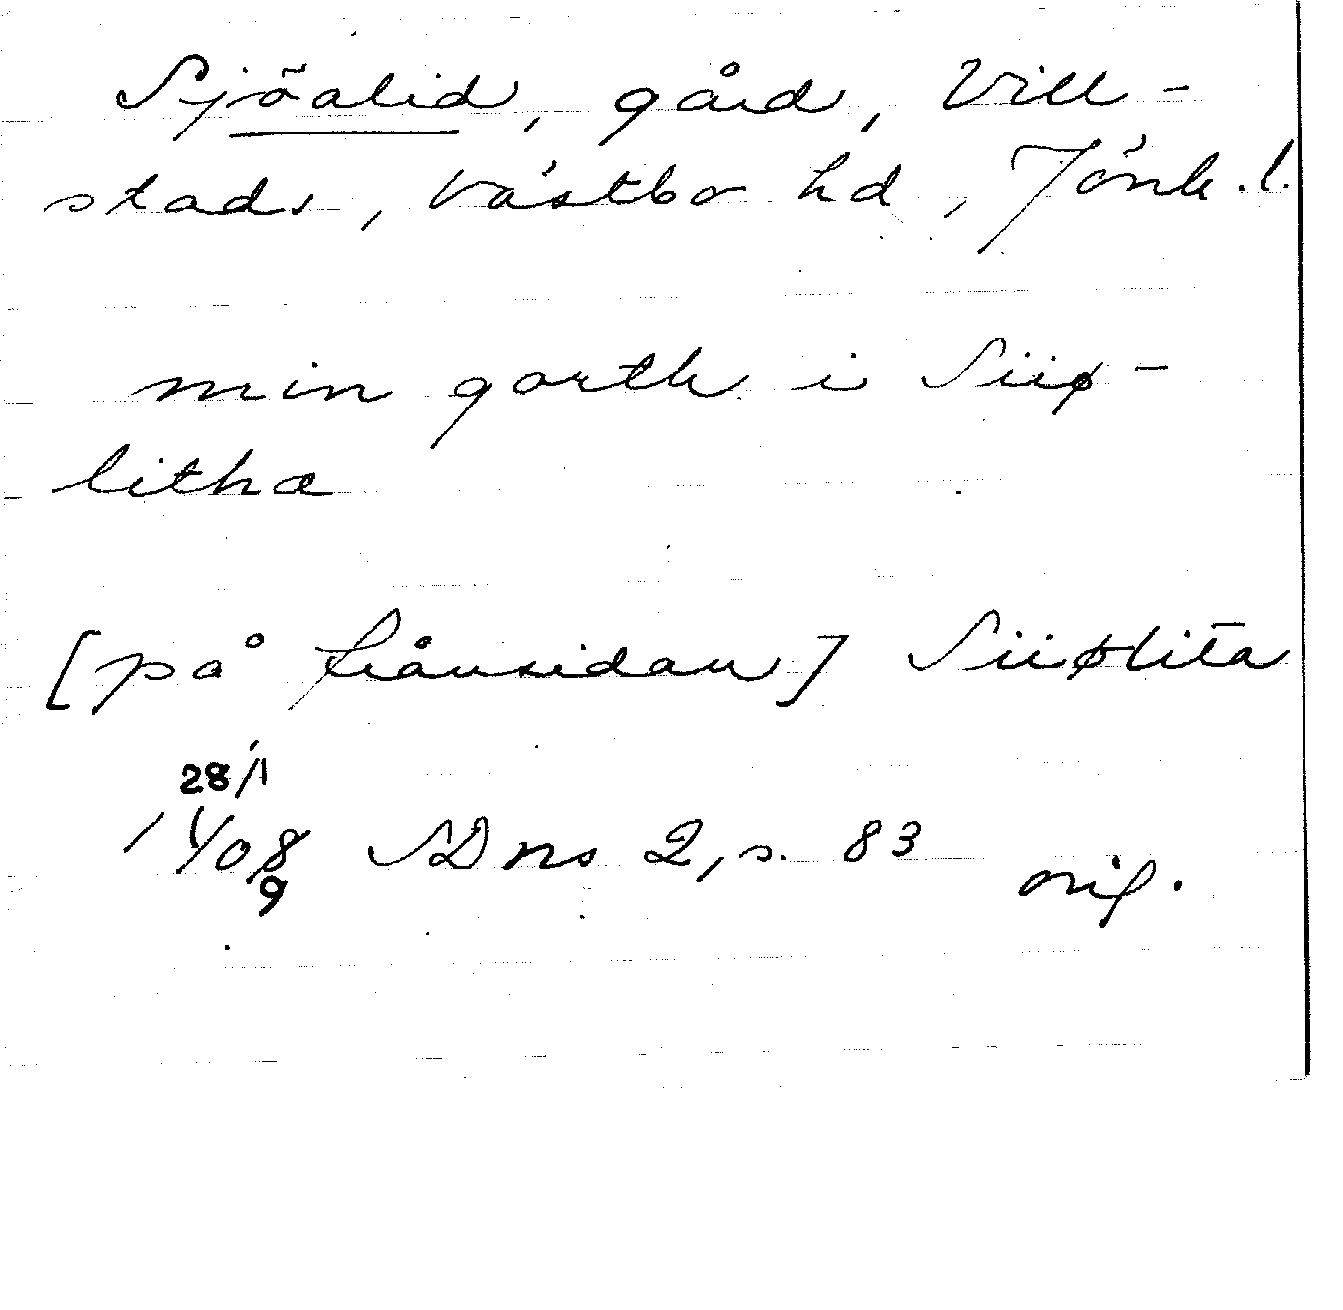 Sjöalid, gård, Vill-
stads, Västbo hd, Jönk.l.
min garth i Siiø-
lithæ
[på frånsidan] Siiølita
28/1
1408 SD ns 2, s. 83 orig.
9